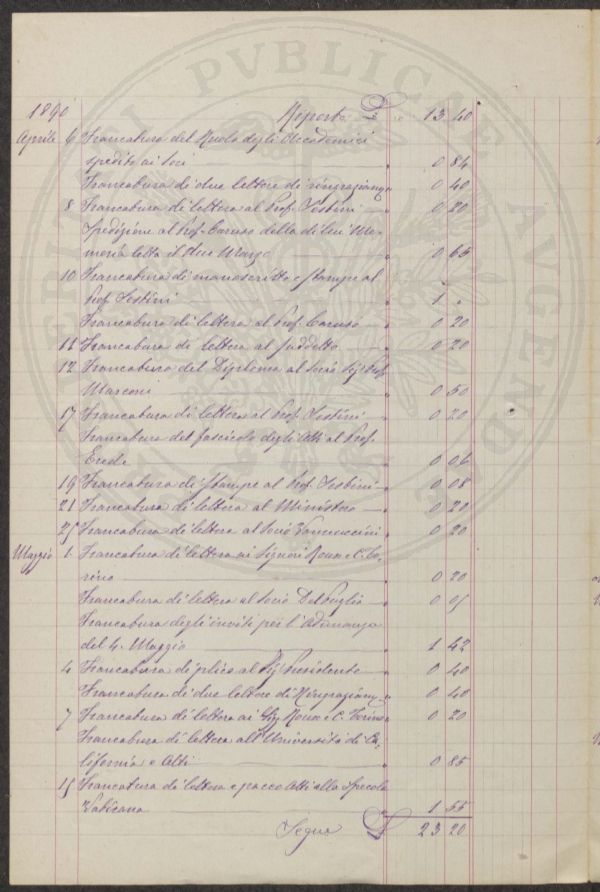 1890 Riporto £ 13 40
Aprile 6 Francatura del Ruolo degli Accademici
spedito ai Soci " 0 84
Francatura di due lettere di ringraziam. " 0 40
8 Francatura di lettera al Prof. Sestini " 0 20
Spedizione al Prof. Caruso della di lui Me-
moria letta il due Marzo " 0 65
10 Francatura di manoscritto e stampe al
Prof. Sestini " 1 "
Francatura di lettera al Prof. Caruso " 0 20
11 Francatura di lettera al suddetto " 0 20
12 Francatura del Diploma al Socio Sig. Prof.
Marconi " 0 50
17 Francatura di lettera al Prof. Sestini " 0 20
Francatura del fascicolo degli Atti al Prof.
Erede " 0 06
19 Francatura di stampe al Prof. Sestini " 0 08
21 Francatura di lettera al Ministero " 0 20
25 Francatura di lettera al Socio Vannuccini " 0 20
Maggio 1. Francatura di lettera ai Signori Roux e C. To-
rino " 0 20
Francatura di lettera al Socio Del Puglia " 0 05
Francatura degli inviti per l'Adunanza
del 4. Maggio " 1 42
4 Francatura di plico al Sig. Presidente " 0 40
Francatura di due lettere di Ringraziam. " 0 40
7 Francatura di lettera ai Sig. Roux e C. Torino " 0 20
Francatura di lettera all'Università di Ca-
lifornia e Atti " 0 85
15 Francatura di lettera e pacco Atti alla Specola
Vaticana " 1 55
Segue £ 23 20